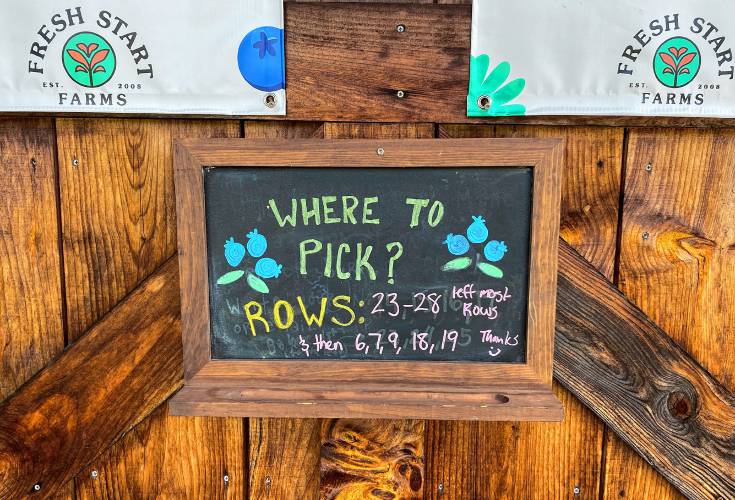 FRESH START
EST. 2008
FARMS
FRESH START
EST. 2008
FARMS
WHERE TO
PICK?
ROWS: 23-28 left most Rows
& then 6,7,9, 18, 19 Thanks